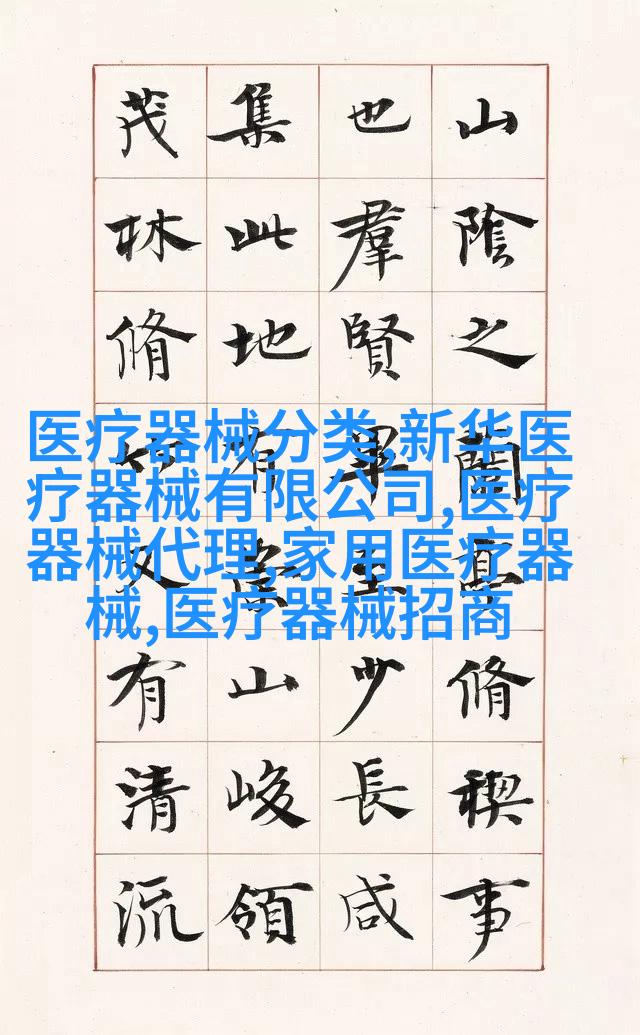 山陰之蘭亭脩稧事
也羣賢畢至少長咸
集此地有崇山峻領
茂林脩竹又有清流
医疗器械分类,新华医
疗器械有限公司,医疗
器械代理,家用医疗器
械,医疗器械招商